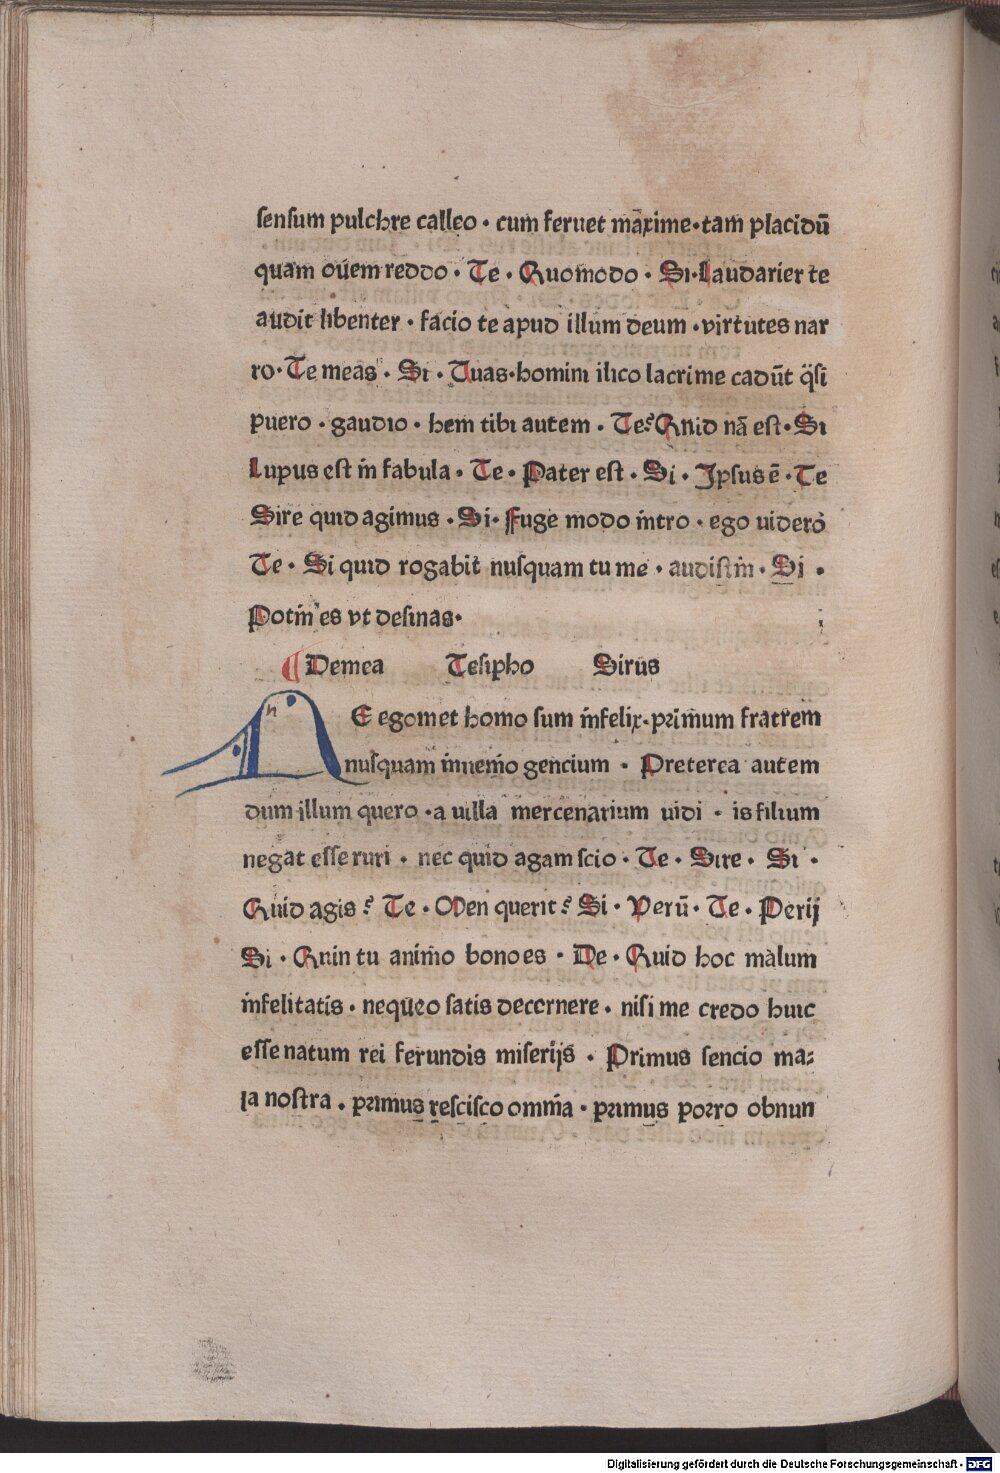 sensum pulchre calleo · cum feruet maxime · tam placidū
quam ouem reddo · Te · Quomodo · Si · Laudarier te
audit libenter · facio te apud illum deum · virtutes nar
ro · Te meas · Si · Tuas · homini ilico lacrime cadūt q̄si
puero · gaudio · hem tibi autem · Te? Quid nā est · Si
Lupus est in fabula · Te · Pater est · Si · Ipsus ē · Te
Sire quid agimus · Si · Fuge modo intro · ego uidero
Te · Si quid rogabit nusquam tu me · audistin · Si ·
Potin es vt desinas ·
Demea Tesipho Sirus
n E egomet homo sum infelix · primum fratrem
nusquam inuenio gencium · Preterea autem
dum illum quero · a uilla mercenarium uidi · is filium
negat esse ruri · nec quid agam scio · Te · Sire · Si ·
Quid agis? Te · Men querit? Si · Verū · Te · Perij
Si · Quin tu animo bono es · De · Quid hoc malum
infelitatis · nequeo satis decernere · nisi me credo huic
esse natum rei ferundis miserijs · Primus sencio ma⸗
la nostra · primus rescisco omnia · primus porro obnun
Digitalisierung gefördert durch die Deutsche Forschungsgemeinschaft - DFG